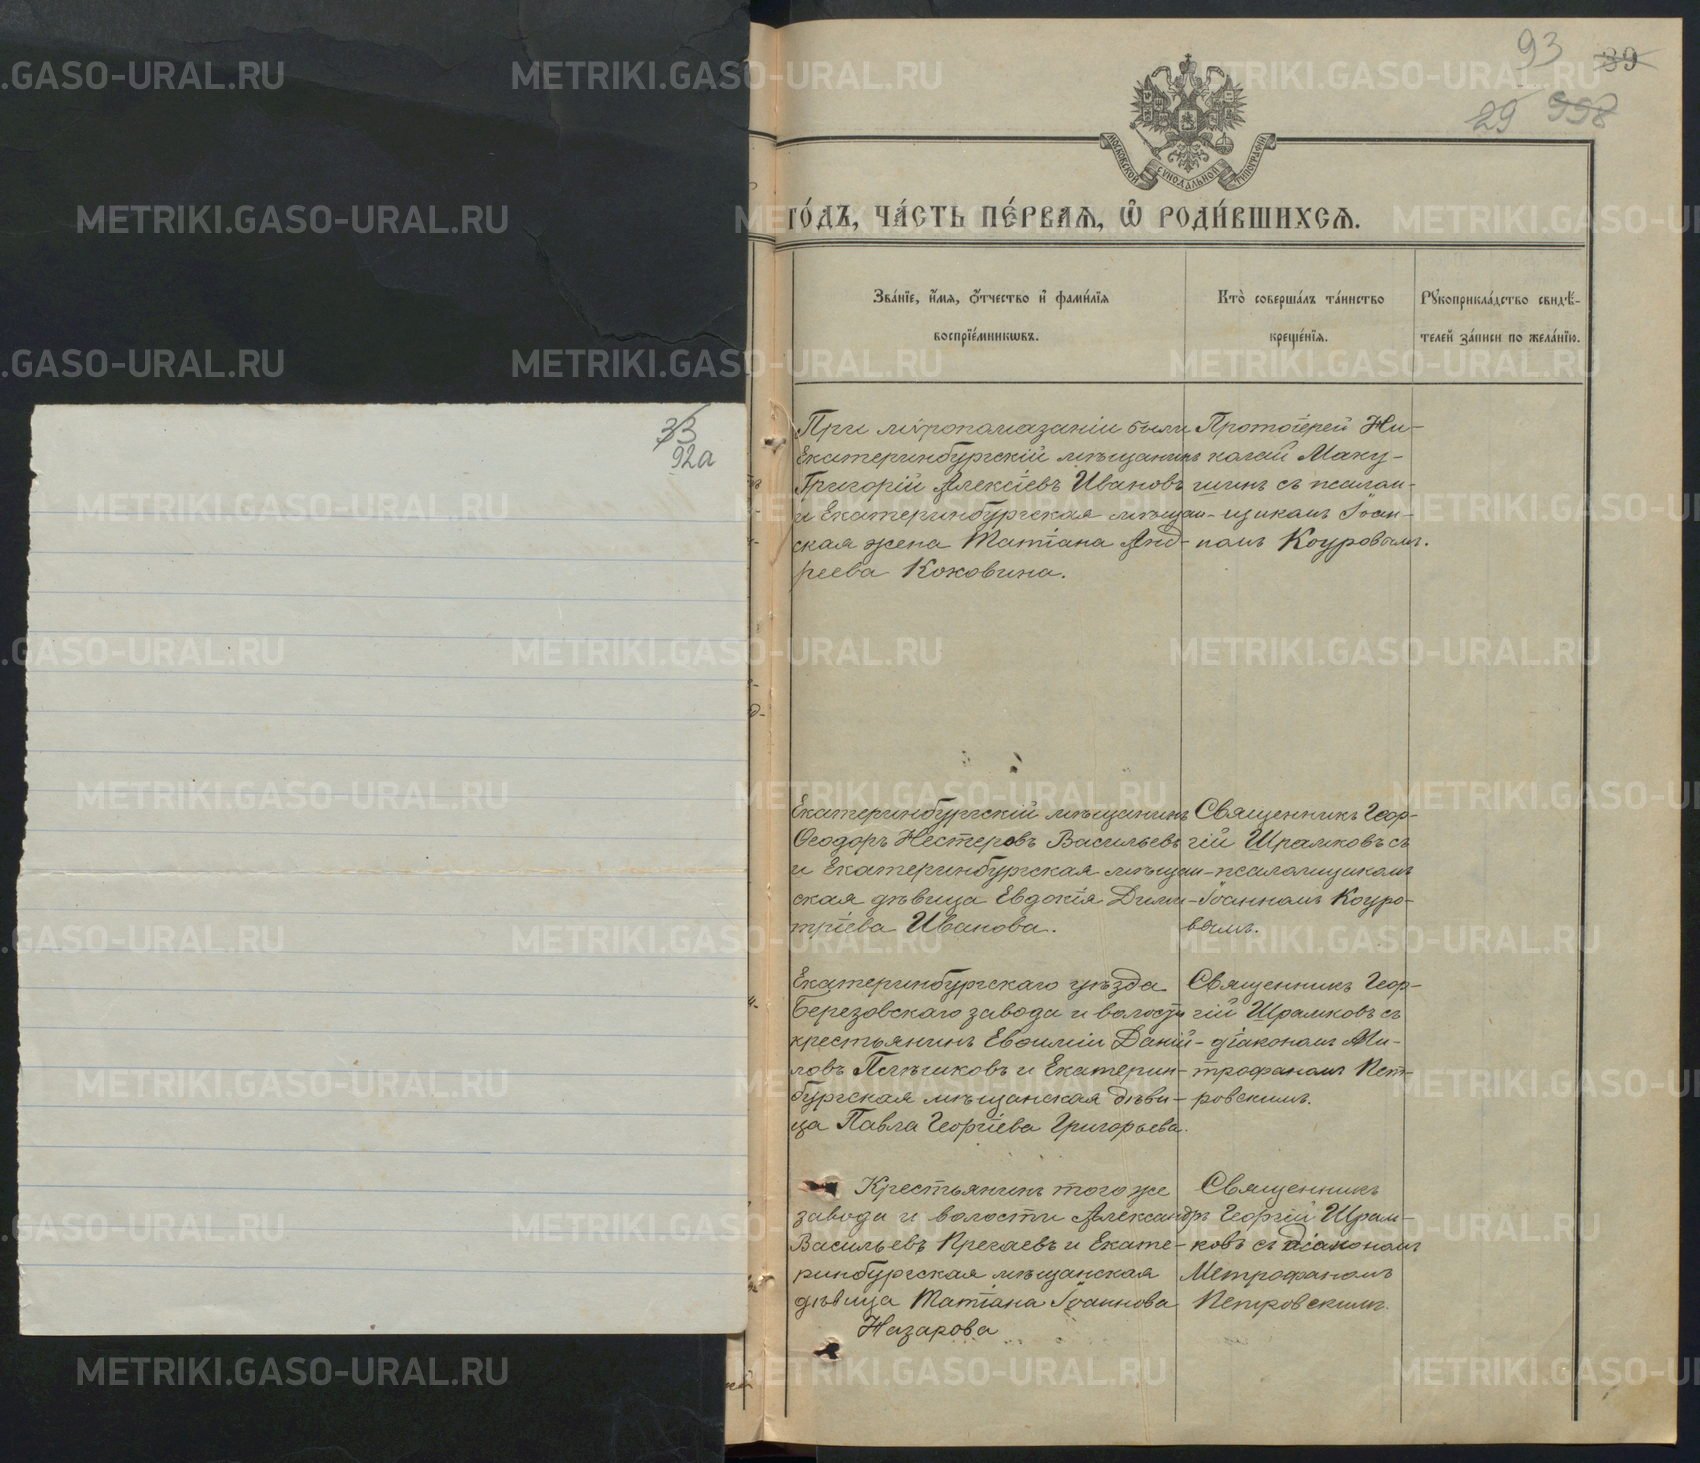 93 39
29 998
33
92а
МОСКОВСКОЙ СѴНОДАЛЬНОЙ ТИПОГРАФІИ
го́дъ, ча́сть пе́рвая, ѡ҆ роди́вшихся.
Зва́нїе, и҆́мя, ѻ҆́тчество и҆ фами́лїя
воспрїе́мникѡвъ.
Кто̀ соверша́лъ та́инство
креще́нїя.
Рꙋкоприкла́дство свидѣ́-
телей за́писи по жела́нїю.
При мѵропомазаніи были
Екатеринбургскій мѣщанинъ
Григорій Алексіевъ Ивановъ
и Екатеринбургская мѣщан-
ская жена Татіана Анд-
реева Коковина.
Протоіерей Ни-
колай Маку-
шинъ съ псалом-
щикомъ Іоан-
номъ Коуровымъ.
Екатеринбургскій мѣщанинъ
Ѳеодоръ Нестеровъ Васильевъ
и Екатеринбургская мѣщан-
ская дѣвица Евдокія Дими-
тріева Иванова.
Священникъ Геор-
гій Шрамковъ съ
псаломщикомъ
Іоанномъ Коуро-
вымъ.
Екатеринбургскаго уѣзда
Березовскаго завода и волости
крестьянинъ Евѳимій Даніи-
ловъ Пѣгниковъ и Екатерин-
бургская мѣщанская дѣви-
ца Павла Георгіева Григорьева.
Священникъ Геор-
гій Шрамковъ съ
діакономъ Ми-
трофаномъ Пет-
ровскимъ.
Крестьянинъ того же
завода и волости Александръ
Васильевъ Пречаевъ и Екате-
ринбургская мѣщанская
дѣвица Татіана Іоаннова
Назарова
Священникъ
Георгій Шрам-
ковъ съ діакономъ
Метрофаномъ
Петровскимъ.
METRIKI.GASO-URAL.RU